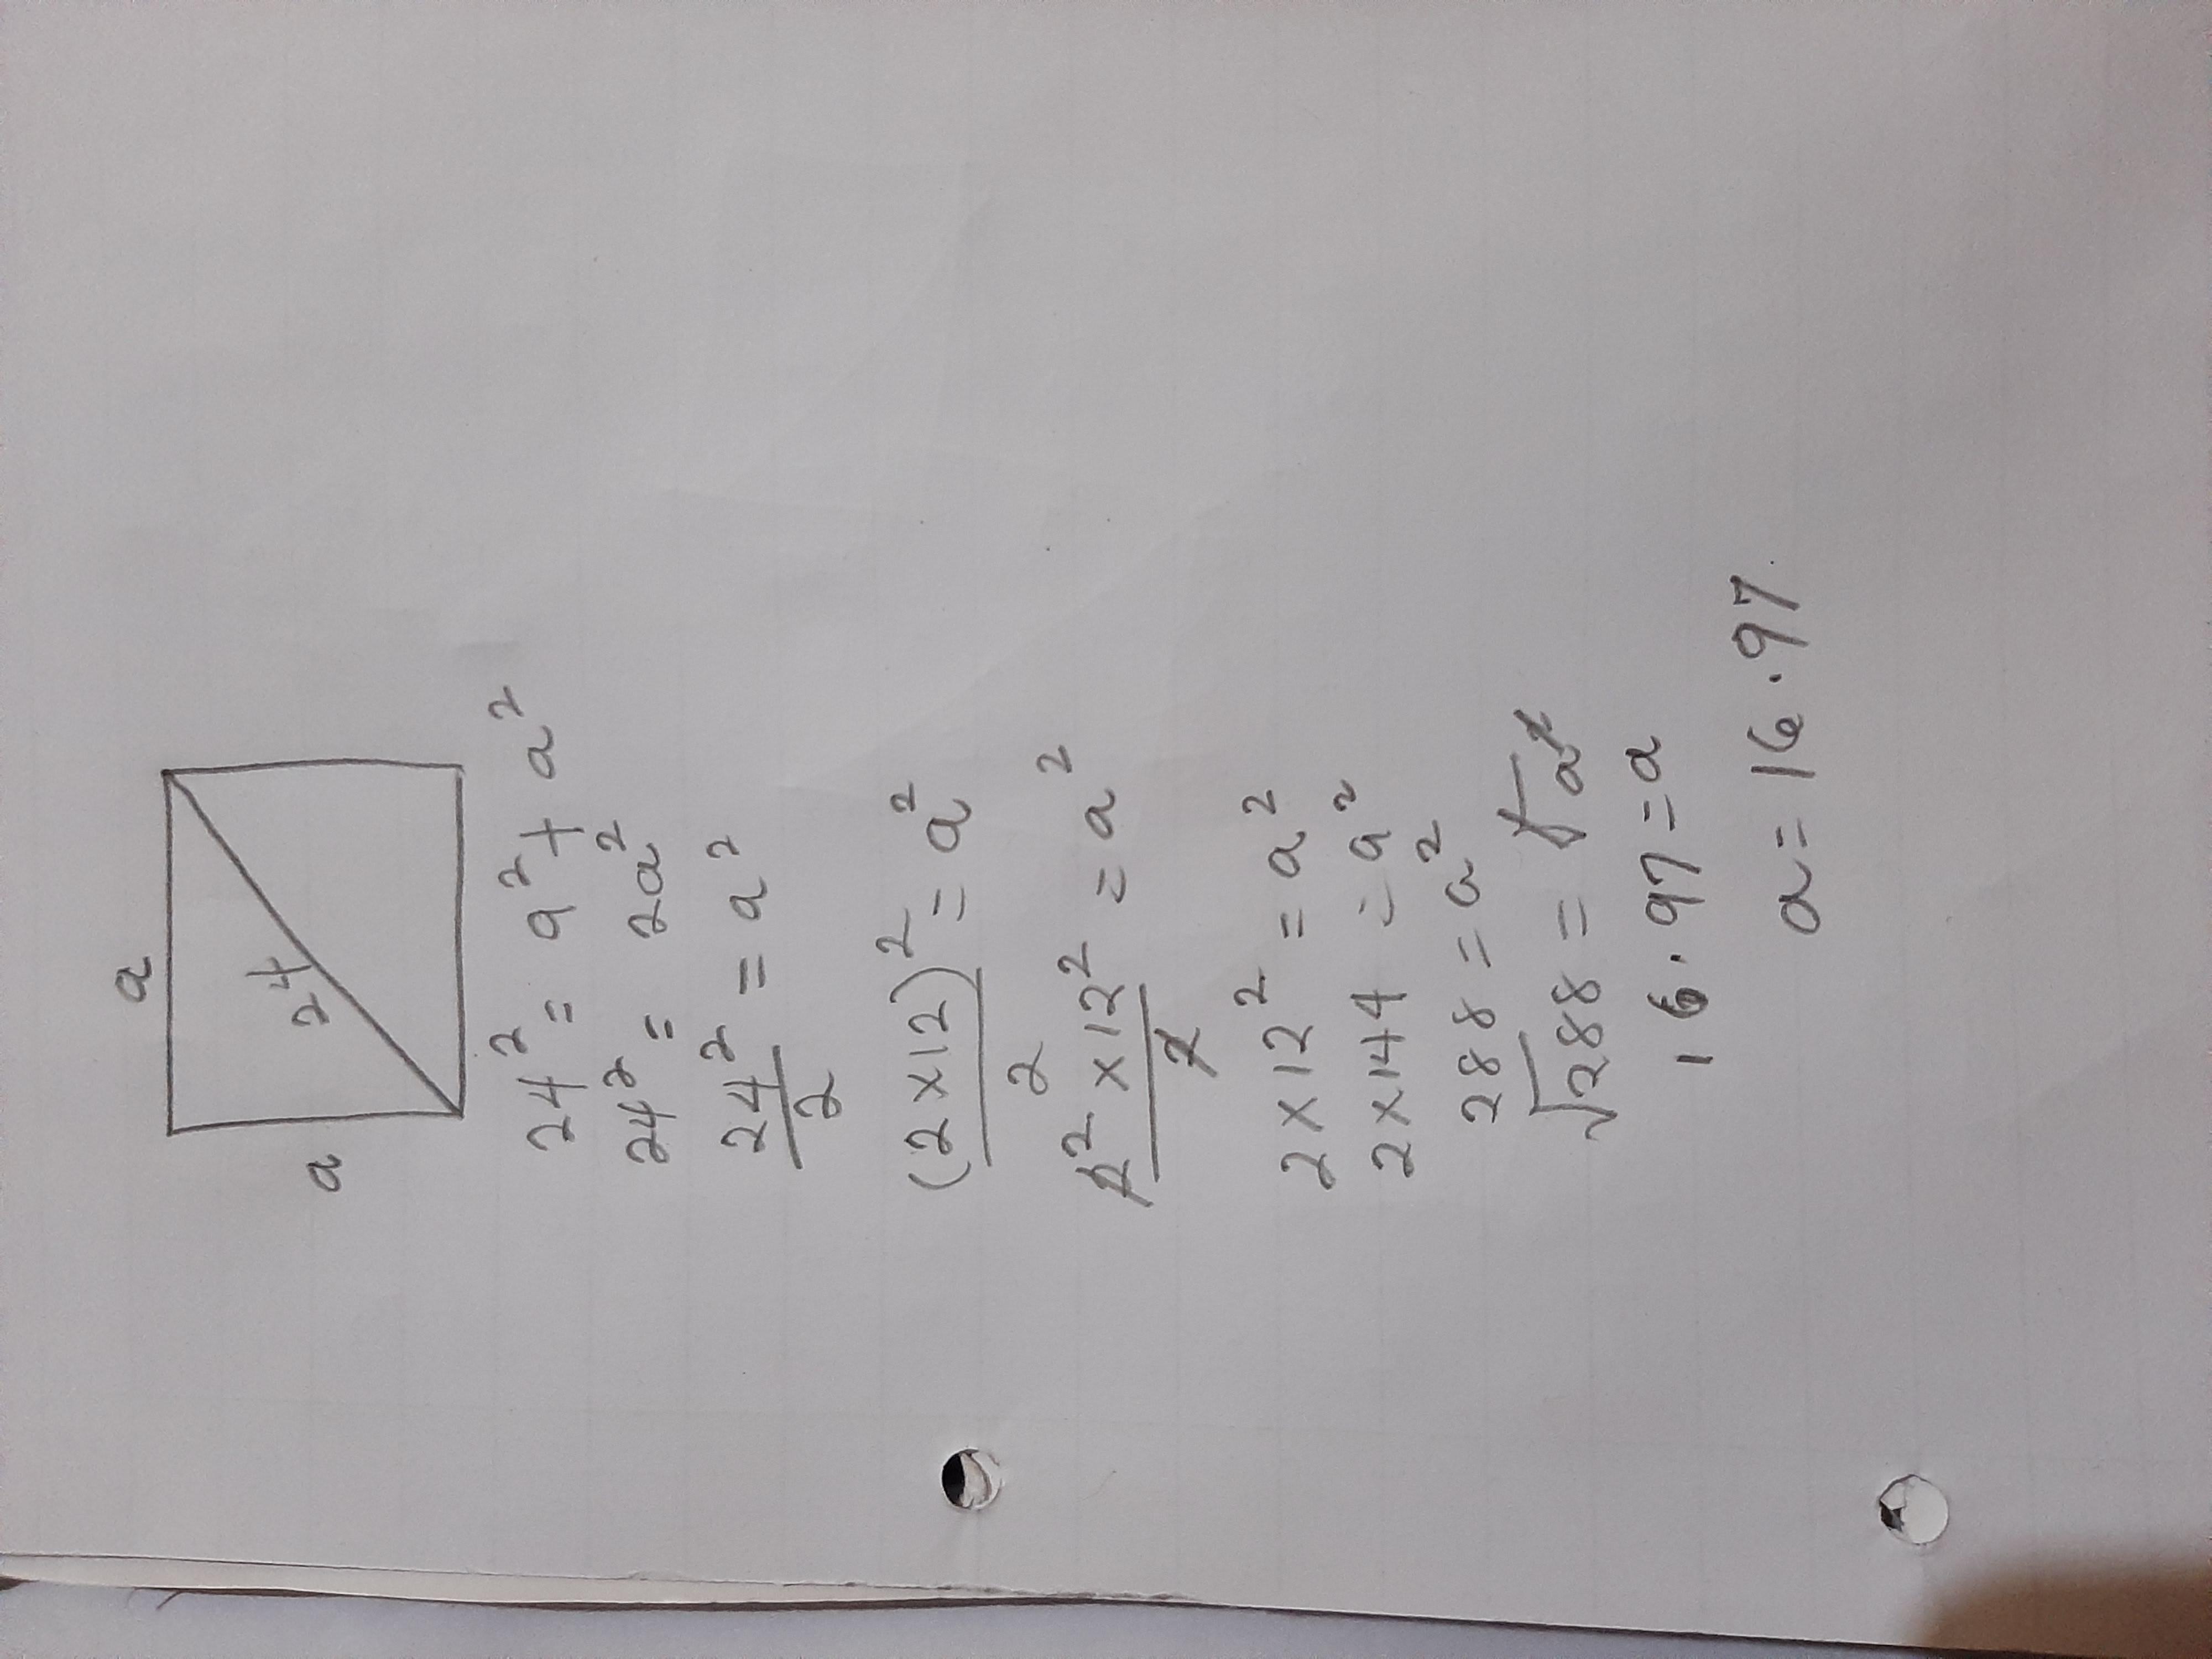 a
a
24
24² = a² + a²
24² = 2a²
24²/2 = a²
(2×12)²/2 = a²
2²×12²/2 = a²
2×12² = a²
2×144 = a²
288 = a²
√288 = √a²
16.97 = a
a = 16.97